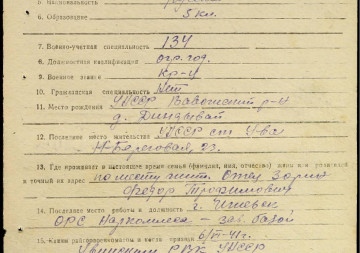 5. Национальность
6. Образование 5 кл.
7. Военно-учетная специальность 134
8. Должностная квалификация огр. год.
9. Военное звание кр-ц
10. Гражданская специальность
11. Место рождения УАССР Вавожский р-н
д.
12. Последнее место жительства УАССР ст. Ува
Н-Береговая, 23
13. Где проживает в настоящее время семья (фамилия, имя, отчество)
и точный их адрес по месту жит. Отец
Федор Трофимович
14. Последнее место работы и должность
ОРС зав. базой
15. Каким райвоенкоматом и число призыва 6/VI-41г.
РВК УАССР